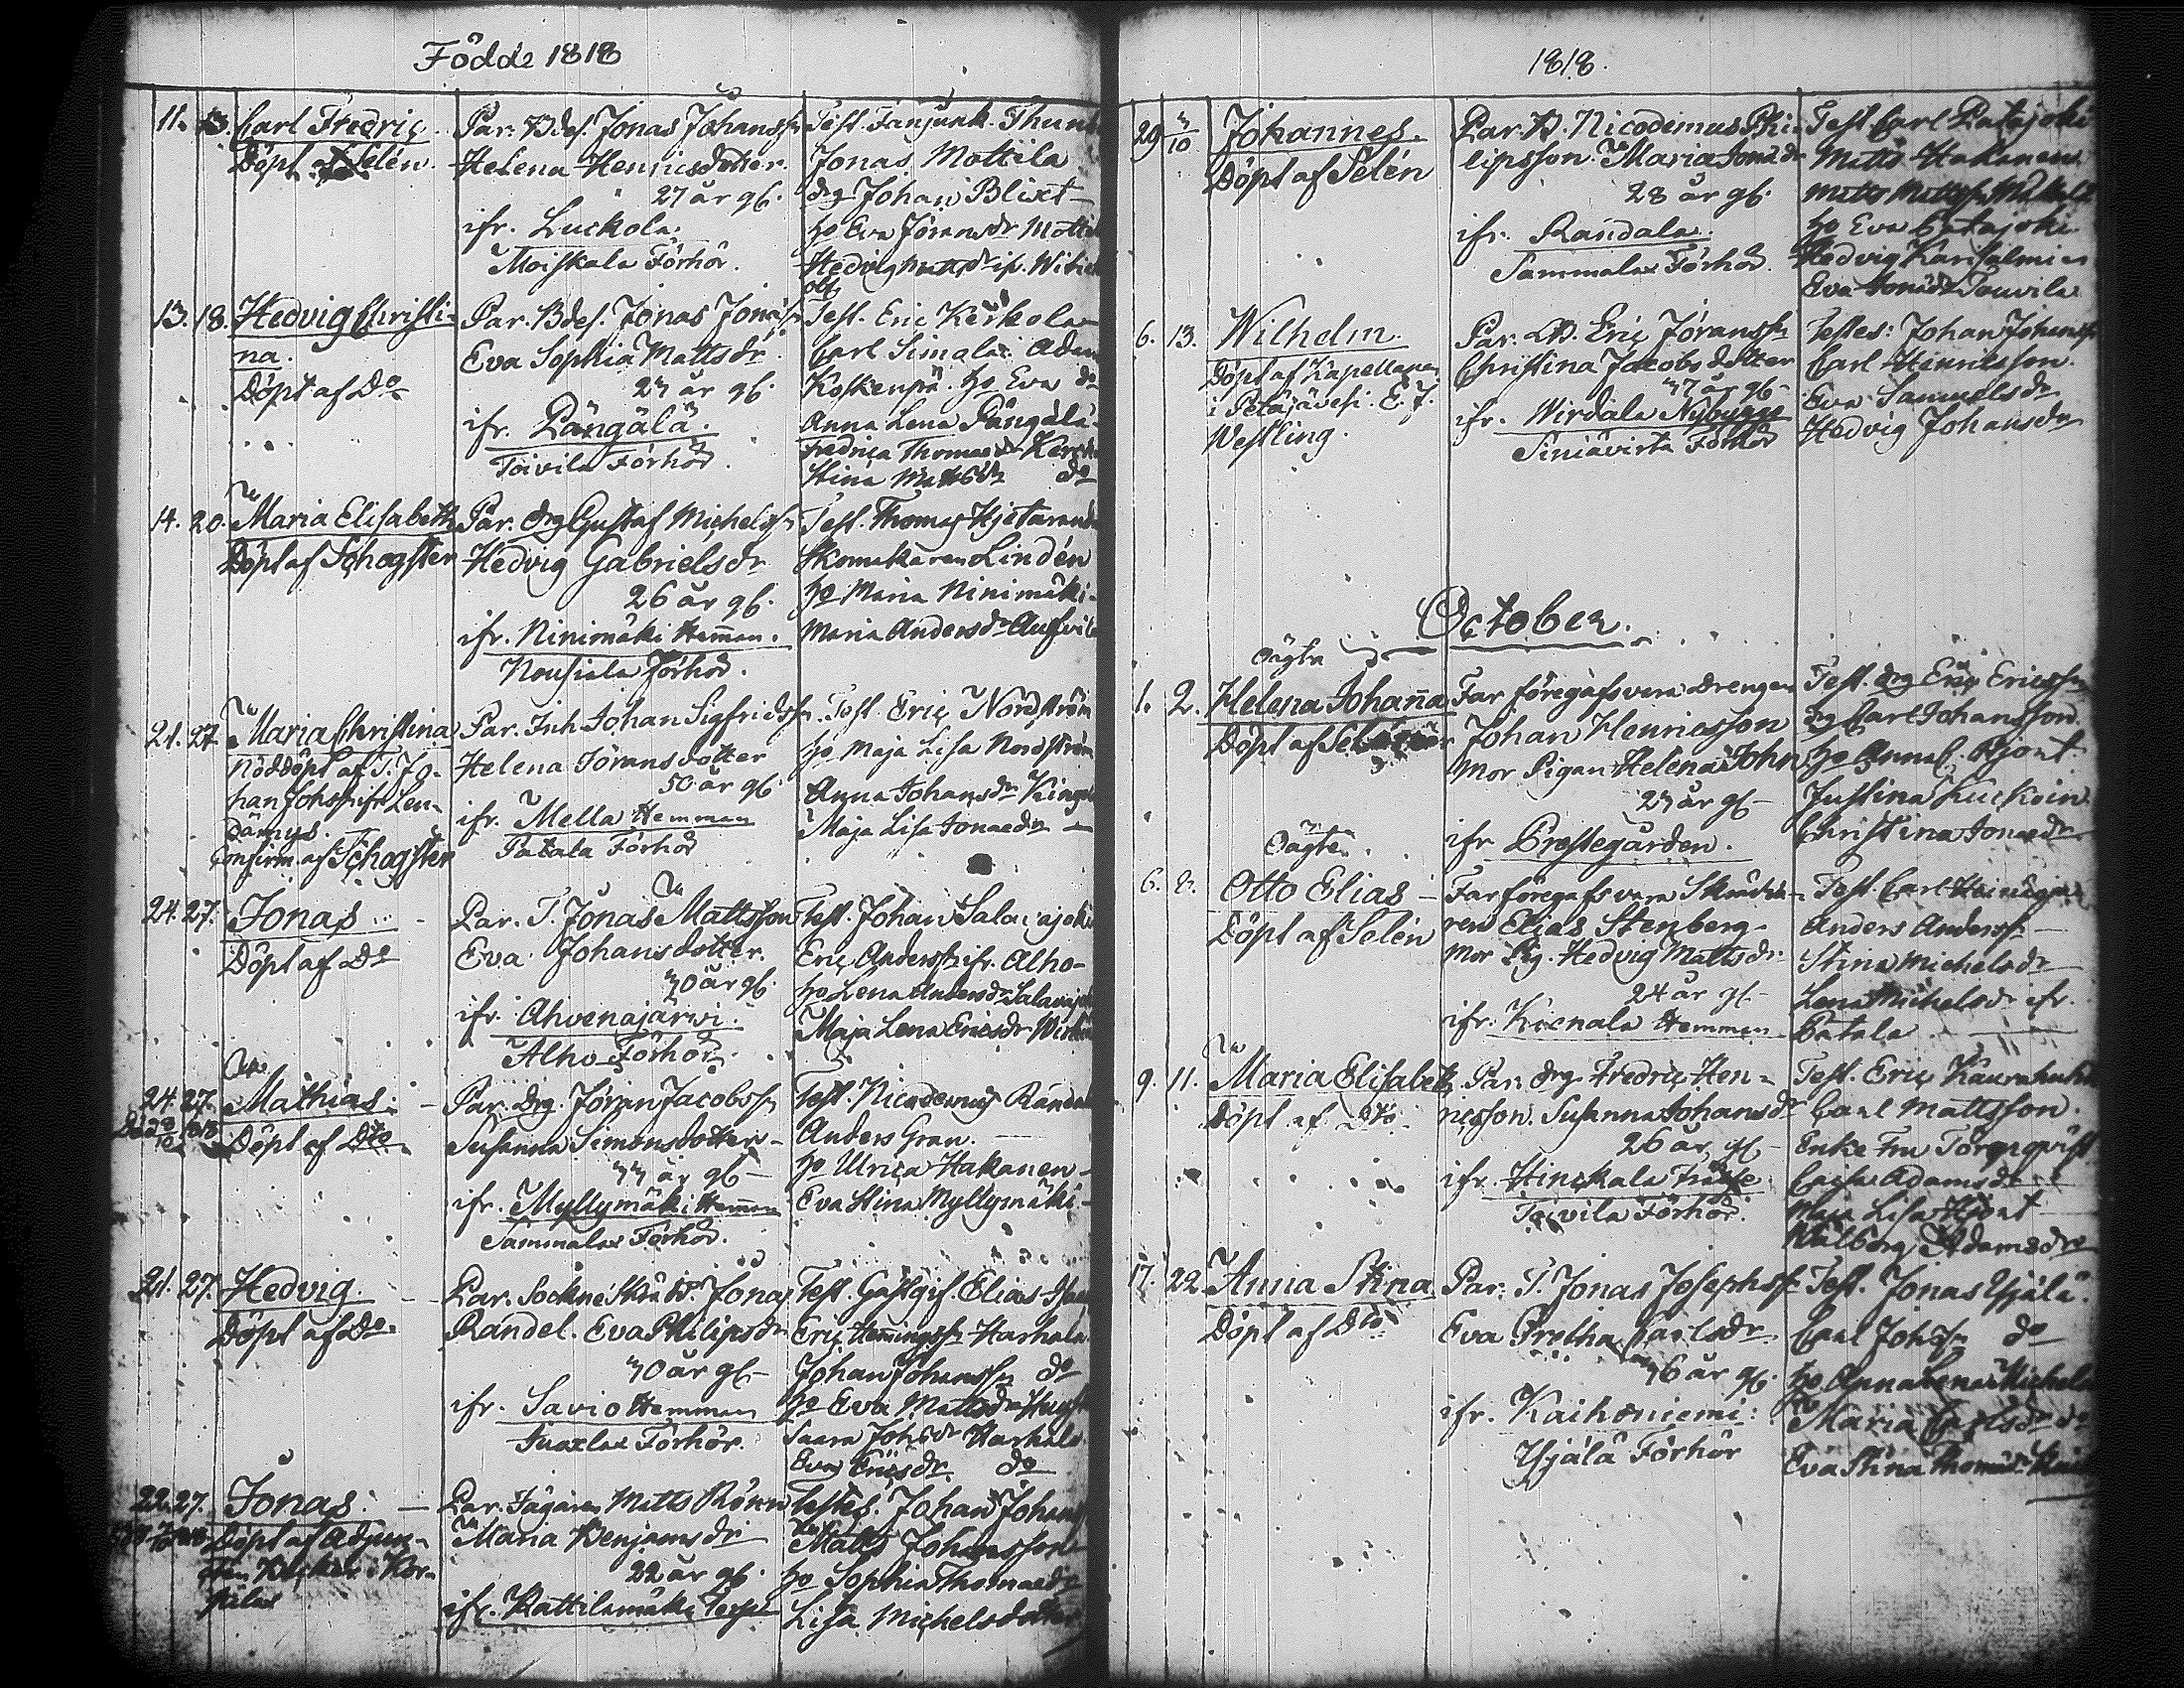 Födde 1818
11. 13. Carl Fredric
Döpt af Selén.
Par. Bdes. Jonas Johanss
Helena Henricsdotter
27 år gl.
ifr. Luckola.
Moiskala Förhör.
Test. Fanjunk. Thun
Jonas Mattila
drg Johan Blixt
ho Eva Jöransdr
Hedvig Mattsdr
13. 18. Hedvig Christi-
na.
Döpt af Do
Par. Bdes. Jonas Jonass
Eva Sophia Mattsdr
27 år gl.
ifr. Pängälä.
Toivila Förhör.
Test. Eric Kerkola
Carl Simola. Adam
Koskenpä. ho Eva do
Anna Lena Pängälä
Fredrica Thomaedr
Stina Mattsdr do
14. 20. Maria Elisabeth
Döpt af Schogster
Par. drg Gustaf Michelss
Hedvig Gabrielsdr
26 år gl.
ifr. Ninimäki Hemman.
Nousiala Förhör.
Test. Thomas
Skomakaren Lindén
ho Maria Ninimäki
Maria Andersdr
21. 27 Maria Christina
Nöddöpt af T. Jo-
han Johss ifr.
Confirm. af Schogster
Par. Inh Johan Sigfridss
Helena Jöransdotter
50 år gl.
ifr. Mella Hemman
Patala Förhör
Test. Eric Nordström
ho Maja Lisa Nordström
Anna Johansdr
Maja Lisa Jonaedr
24. 27. Jonas
Döpt af Do
Par. T. Jonas Mattsson
Eva Johansdotter.
30 år gl.
ifr. Ahvenajärwi.
Alho Förhör.
Test. Johan
Eric Anderss ifr. Alho
ho Lena Andersdr
Maja Lena Ericsdr
24. 27. Mathias.
Döpt af Dto
Par. drg. Jöran Jacobss
Susanna Simonsdotter
33 år gl
ifr. Myllymäki Hemman
Sammalax Förhör.
Test. Nicodemus
Anders Gran.
ho Ulrica Hakanen
Eva Stina Myllymäki
21. 27. Hedvig.
Döpt af Do
Par. Sockne Skräd. Jonas
Randel. Eva Philipsdr
30 år gl.
ifr. Savio Hemman
Förhör.
Test. Gästgif. Elias
Eric Henningss Harhala
Johan Johanss do
ho Eva Mattsdr
Saara Johsdr Harhala
Eva Ericsdr do
22. 27. Jonas.
Döpt af Adjunc-
Par. Jägaren Matts
Maria Benjamsdr
22 år gl.
ifr. Kattilamäki Torp
Testes. Johan Johans
Matts Johansson
ho Sophia Thomaedr
Lisa Michelsdotter
1818.
29 4/10 Johannes.
Döpt af Selén
Par. B. Nicodemus Phi-
lipsson. Maria Jonædr
28 år gl.
ifr. Randala.
Sammalax Förhör.
Test. Carl Patajoki
Matts Hakanen
ho Eva Patajoki
Hedvig Karisalmi
Eva Jonædr Touvila
6. 13. Wilhelm.
Döpt af Kapellanen
i Petäjävesi. E. J.
Westling.
Par. B. Eric Jöranss
Christina Jacobsdotter
37 år gl.
ifr. Wirdala Nybygge
Siniävirta Förhör
Testes: Johan Johanss
Carl Henricsson.
Eva Samuelsdr
Hedvig Johansdr
October.
Oägta
1. 2. Helena Johanna
Döpt af
Far föregafs vara drengen
Johan Henricsson
Mor Pigan Helena
23 år gl
ifr Prestegården.
Test. drg Eric Ericss
drg Carl Johansson.
Justina
Christina Jonaedr
Oägte.
6. 8. Otto Elias
Döpt af Selén
Far föregafs vara Skrädda-
ren Elias Stenberg.
Mor Pig. Hedvig Mattsdr
24 år gl.
ifr. Hemman
Test. Carl
Anders Anderss
Stina Michelsdr
Lena Michelsdr ifr.
Patala
9. 11. Maria Elisabeth
Döpt af Dto
Par. drg Fredric Hen-
ricsson. Susanna Johansdr
26 år gl
ifr. Hinckala
Toivila Förhör.
Test. Eric
Carl Mattsson.
Enke Fru Törnqvist
Caisa Adamsdr
Maja Lisa
Walborg Adamsdr
17. 22. Anna Stina
Döpt af Dto
Par. T. Jonas Josephss
Eva Carlsdr
36 år gl.
ifr. Kaihoniemi:
Yjälä Förhör
Test. Jonas Yjälä.
Carl Johss do
ho Anna Lena
Maria Carlsdr do
Eva Stina Thomædr